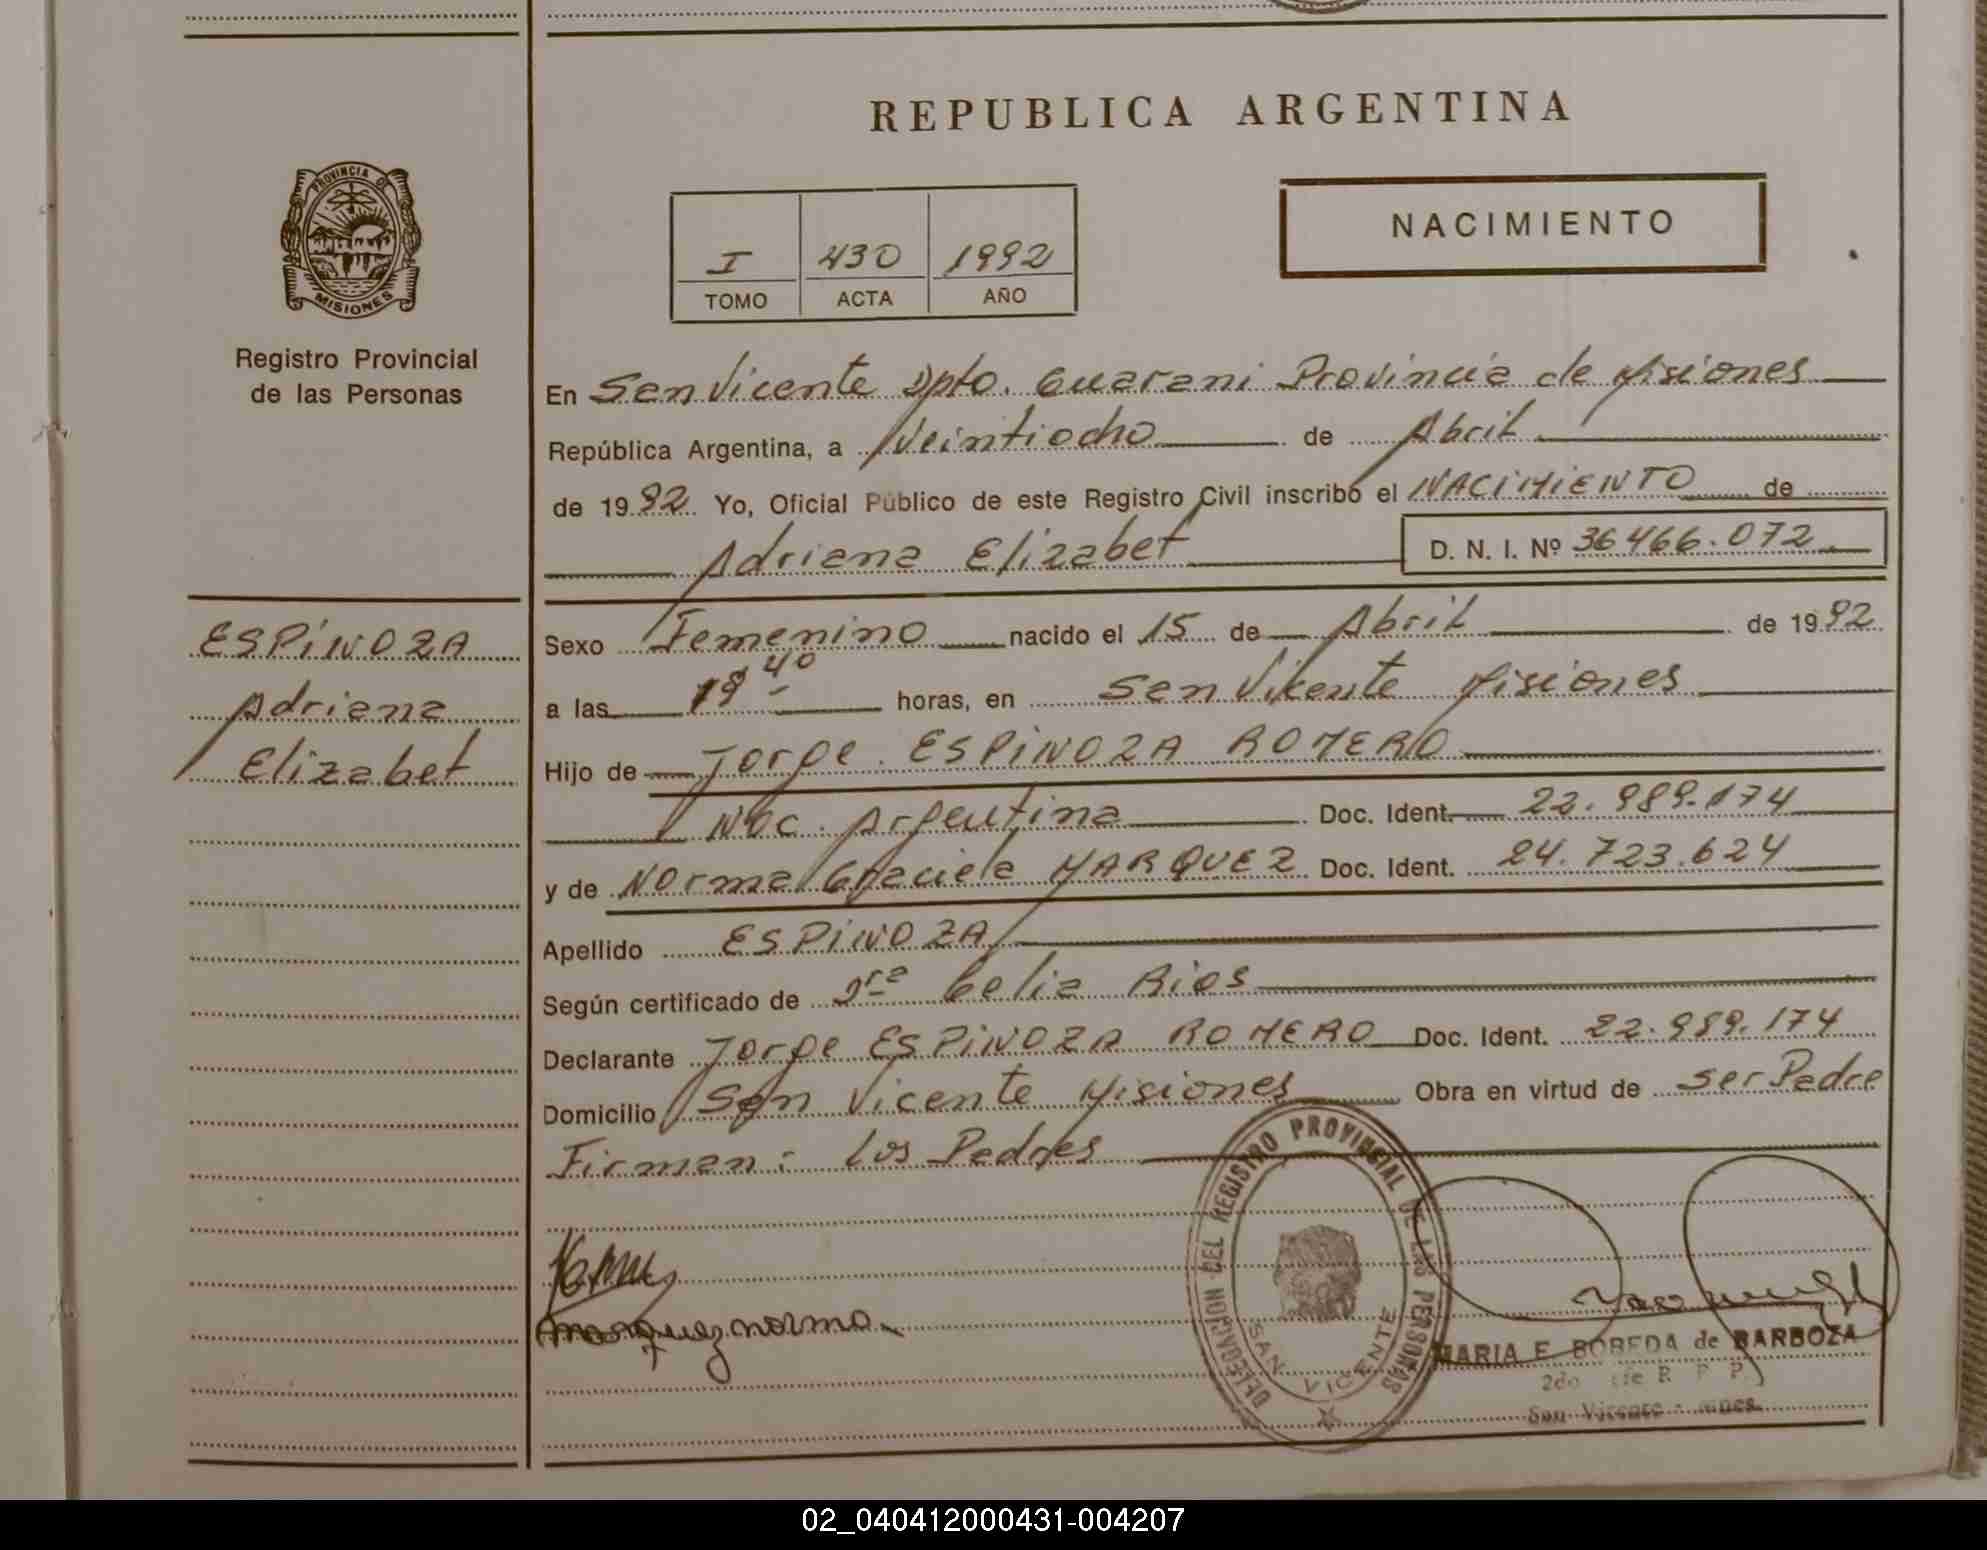 REPUBLICA ARGENTINA
PROVINCIA DE
MISIONES
Registro Provincial
de las Personas
NACIMIENTO
I 430 1992
TOMO ACTA AÑO
En San Vicente Dpto. Guarani Provincia de Misiones
República Argentina, a Veintiocho de Abril
de 1992 Yo, Oficial Público de este Registro Civil inscribo el NACIMIENTO de
Adriana Elizabet D. N. I. Nº 36466.072
ESPINOZA
Adriana
Elizabet
Sexo Femenino nacido el 15 de Abril de 1992
a las 19 40 horas, en San Vicente Misiones
Hijo de Jorge ESPINOZA ROMERO
Nac. Argentina Doc. Ident. 22.989.174
y de Norma Graciela MARQUEZ Doc. Ident. 24.723.624
Apellido ESPINOZA
Según certificado de Dra Celia Rios
Declarante Jorge ESPINOZA ROMERO Doc. Ident. 22.989.174
Domicilio San Vicente Misiones Obra en virtud de ser Padre
Firman: los Padres
marquez norma
DELEGACION DEL REGISTRO PROVINCIAL DE LAS PERSONAS
SAN VICENTE
MARIA E. BOBEDA de BARBOZA
2do R. P. P.
San Vicente
02_040412000431-004207